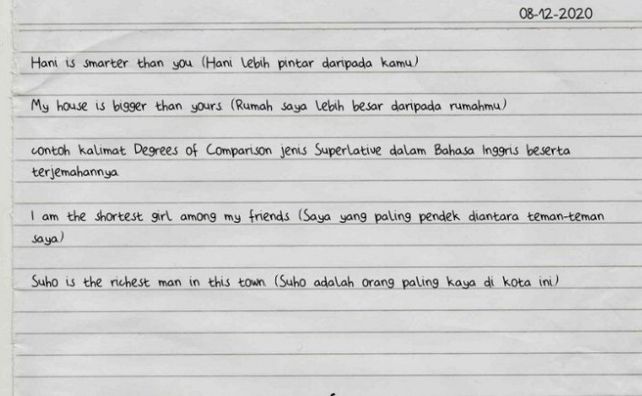 08-12-2020
Hani is smarter than you (Hani lebih pintar daripada kamu)
My house is bigger than yours (Rumah saya lebih besar daripada rumahmu)
contoh kalimat Degrees of Comparison jenis Superlative dalam Bahasa Inggris beserta
terjemahannya
I am the shortest girl among my friends (Saya yang paling pendek diantara teman-teman
saya)
Suho is the richest man in this town (Suho adalah orang paling kaya di kota ini)